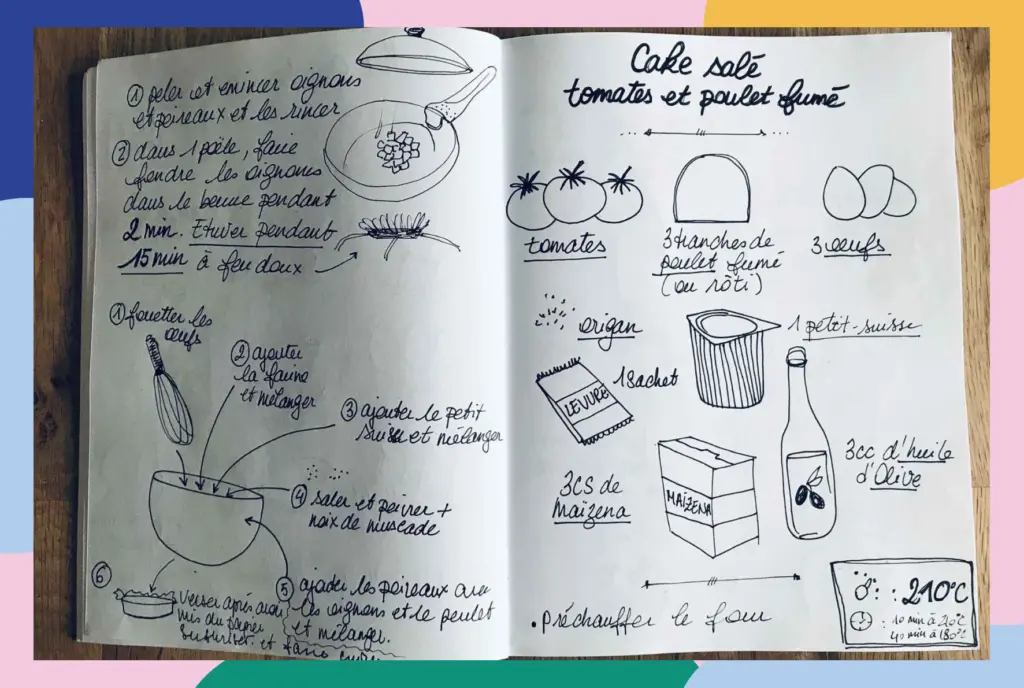 ① peler et emincer oignons
et poireaux et les rincer
② dans 1 poêle, faire
fondre les oignons
dans le beurre pendant
2 min. Etuver pendant
15 min à feu doux
① fouetter les
œufs
② ajouter
la farine
et mélanger
③ ajouter le petit
suisse et mélanger
④ saler et poivrer +
noix de muscade
⑤ ajouter les poireaux avec
les oignons et le poulet
et mélanger.
⑥
Verser après avoir
mis du papier
sulfurisé. et faire
Cake salé
tomates et poulet fumé
tomates
3 tranches de
poulet fumé
(ou rôti)
3 œufs
origan
1 petit-suisse
1 sachet
LEVURE
3cs de
Maïzena
MAÏZENA
3cc d'huile
d'Olive
• Préchauffer le four
: 210°C
: 10 min à 210°C
40 min à 180°C